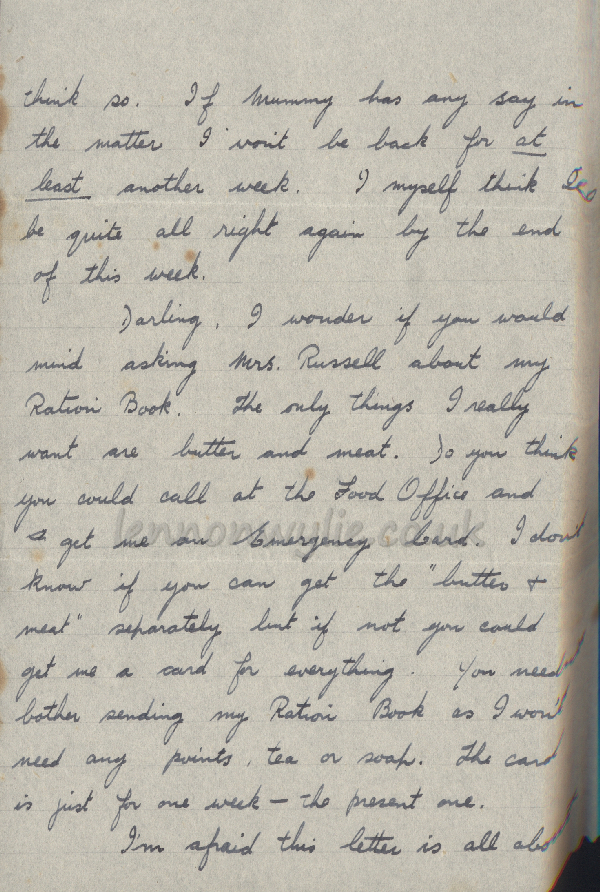 think so. If Mummy has any say in
the matter I won't be back for at
least another week. I myself think I'll
be quite all right again by the end
of this week.
Darling, I wonder if you would
mind asking Mrs. Russell about my
Ration Book. The only things I really
want are butter and meat. Do you think
you could call at the Food Office and
get me an Emergency Card. I don't
know if you can get the "butter +
meat" separately but if not you could
get me a card for everything. You need
bother sending my Ration Book as I won't
need any points, tea or soap. The card
is just for one week – the present one.
I'm afraid this letter is all abo
lennonwylie.co.uk